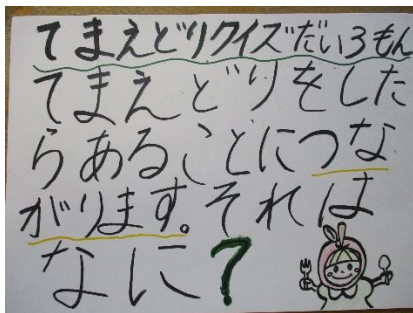 てまえどりクイズだい3もん
てまえどりをした
らあることにつな
がります。それは
なに?